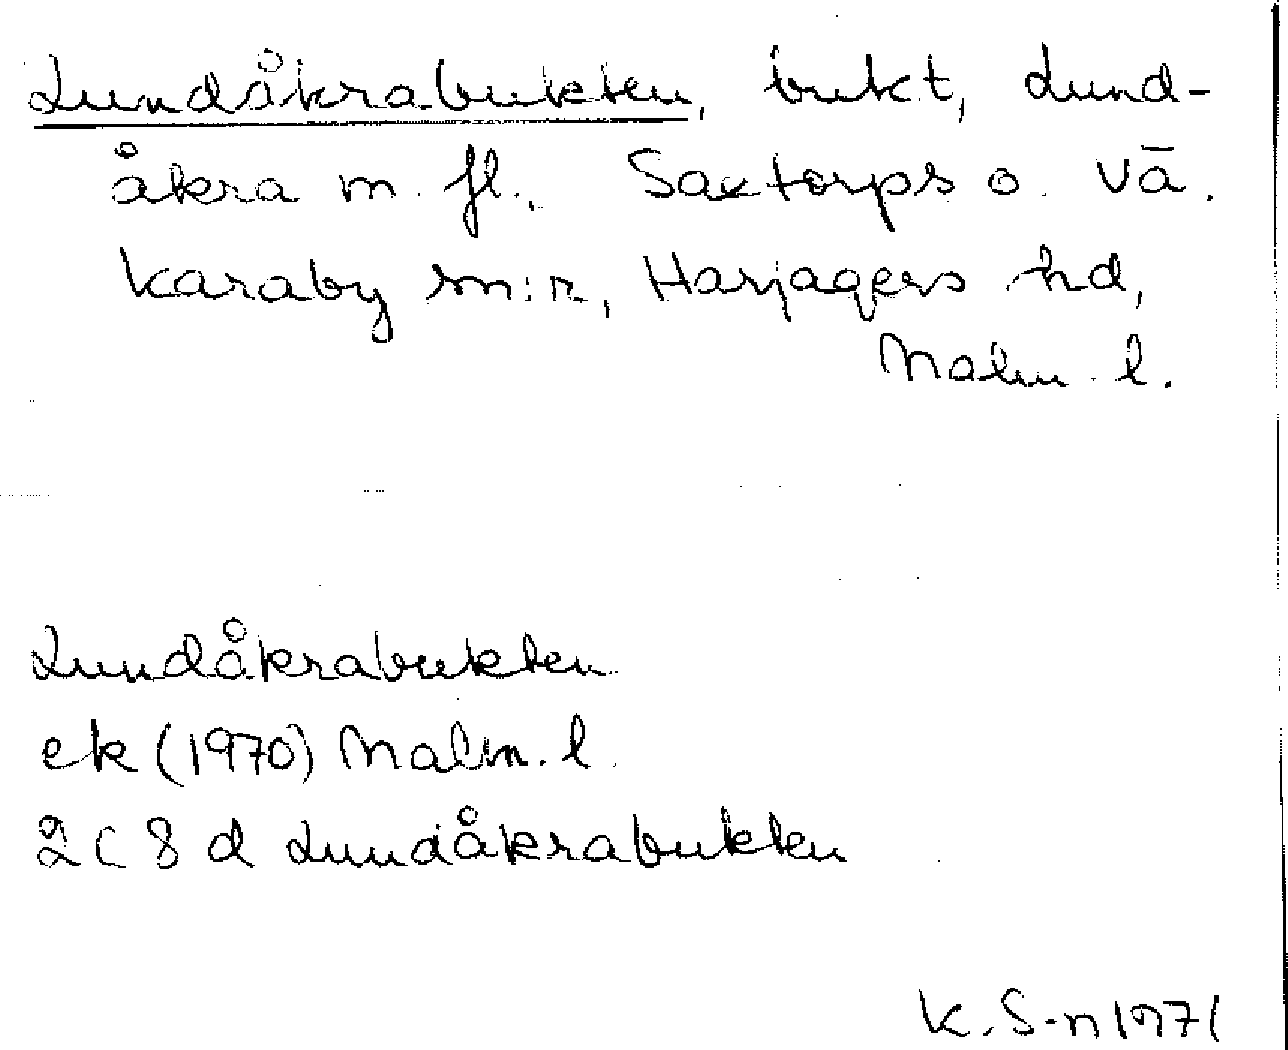 Lundåkrabukten, bukt, Lund-
åkra m. fl., Saxtorps o. Vä.
Karaby sn:r, Harjagers hd,
Malm. l.
Lundåkrabukten
ek (1970) Malm. l.
2C 8 d Lundåkrabukten
K. S-n 1971